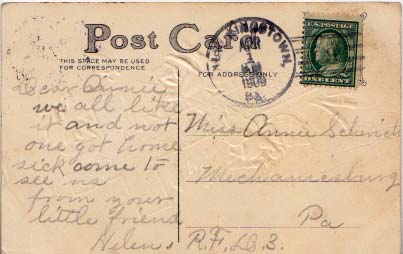 Post Card
THIS SPACE MAY BE USED
FOR CORRESPONDENCE
FOR ADDRESS ONLY
KINGSTOWN
1909
PA.
U.S. POSTAGE
ONE CENT
Dear Annie
we all like
it and not
one got home
sick come to
see us
from your
little friend
Helen.
Miss Annie
Mechanicsburg
Pa
R.F.D. 3.